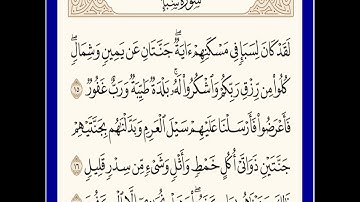 سورة سبإ
لَقَدْ كَانَ لِسَبَإٍ فِي مَسْكَنِهِمْ ءَايَةٌ ۖ جَنَّتَانِ عَن يَمِينٍ وَشِمَالٍ ۖ
كُلُوا۟ مِن رِّزْقِ رَبِّكُمْ وَٱشْكُرُوا۟ لَهُۥ ۚ بَلْدَةٌ طَيِّبَةٌ وَرَبٌّ غَفُورٌ ١٥
فَأَعْرَضُوا۟ فَأَرْسَلْنَا عَلَيْهِمْ سَيْلَ ٱلْعَرِمِ وَبَدَّلْنَٰهُم بِجَنَّتَيْهِمْ
جَنَّتَيْنِ ذَوَاتَىْ أُكُلٍ خَمْطٍ وَأَثْلٍ وَشَىْءٍ مِّن سِدْرٍ قَلِيلٍ ١٦